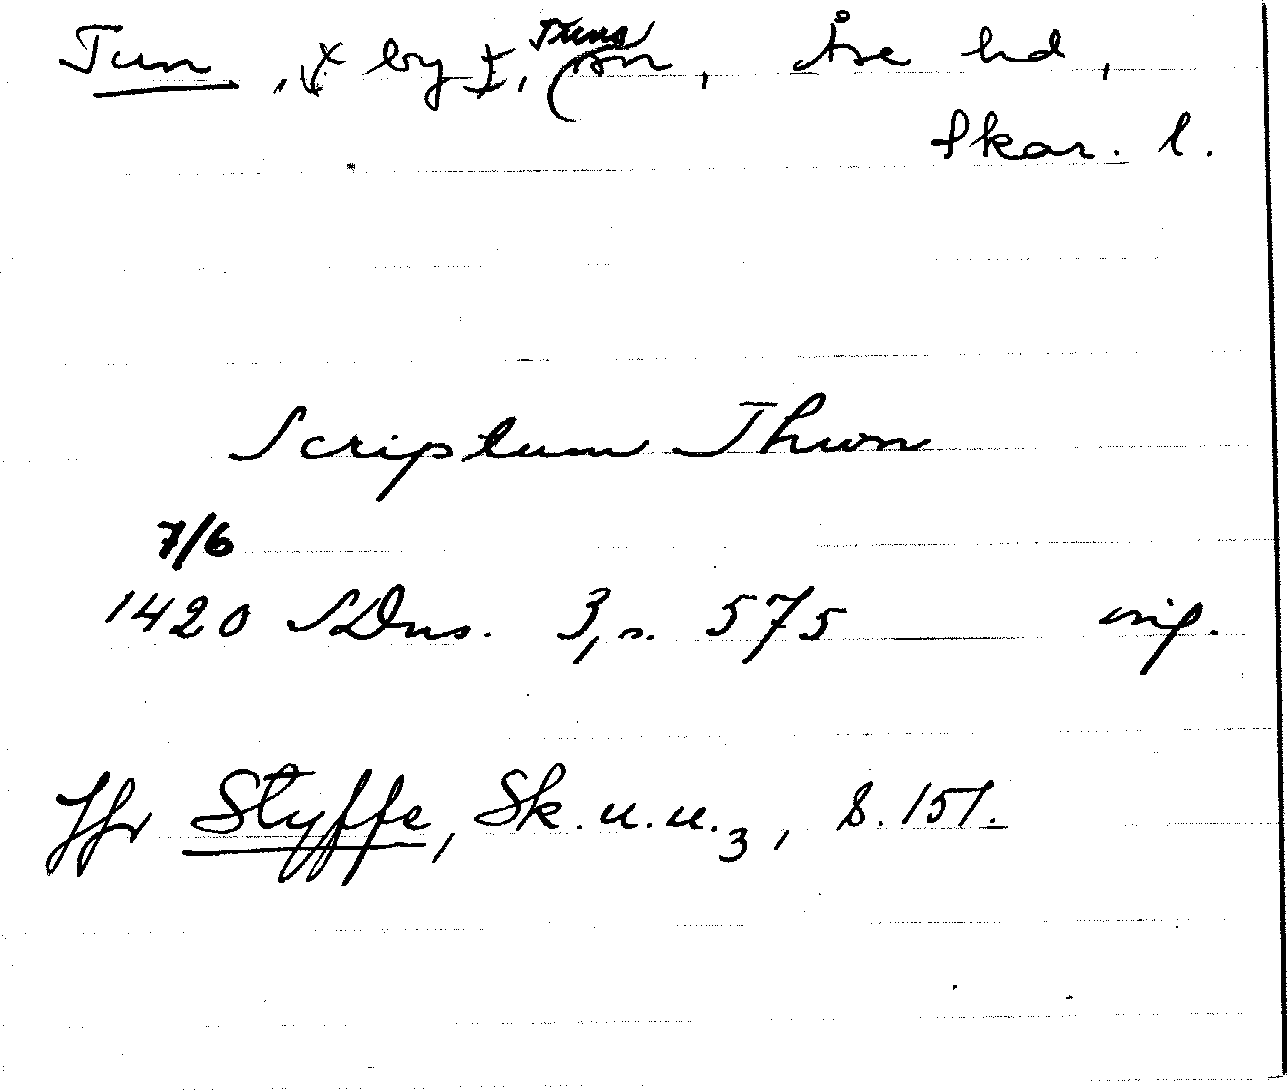 Tun, by, Tuns sn, Åse hd,
Skar. l.
Scriptum Thwn
7/6
1420 SDns. 3, n. 575 orig.
Jfr Styffe, Sk.u.u.3, s. 151.